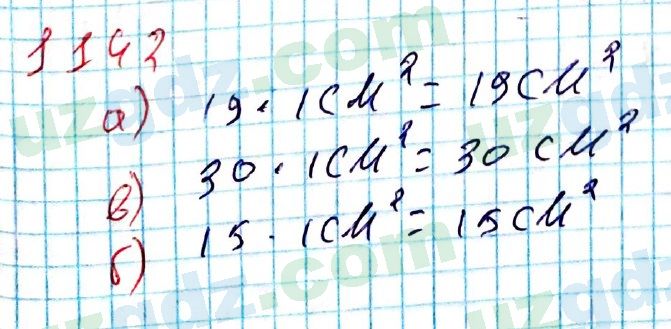 1142
а) 19 · 1см² = 19см²
в) 30 · 1см² = 30 см²
б) 15 · 1см² = 15см²
uzgdz.com